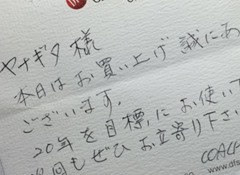 ヤナギタ 様
本日はお買い上げ誠にあ
ございます.
20年を目標にお使い
回もぜひお立寄り下さい
COACH
www.dfs